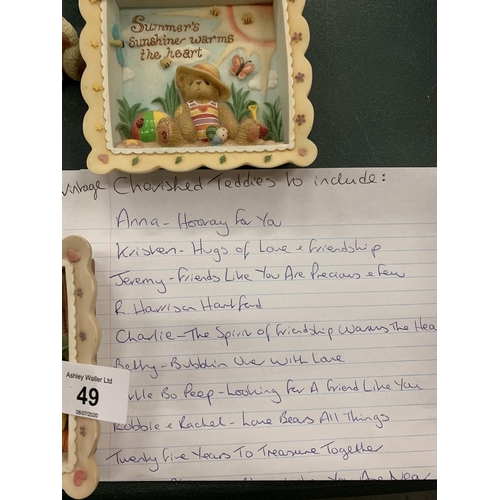 Summer's
sunshine warms
the heart
vintage Cherished Teddies to include:
Anna - Hooray For You
Kristen - Hugs of Love & Friendship
Jeremy - Friends Like You Are Precious & Few
R Harrison Hartford
Charlie - The Spirit of Friendship Warms The Hea
Betty - Bubblin Over With Love
Bo Peep - Looking For A Friend Like You
Robbie & Rachel - Love Bears All Things
Twenty Five Years To Treasure Together
You Are Near
Ashley Waller Ltd
49
08/07/2020